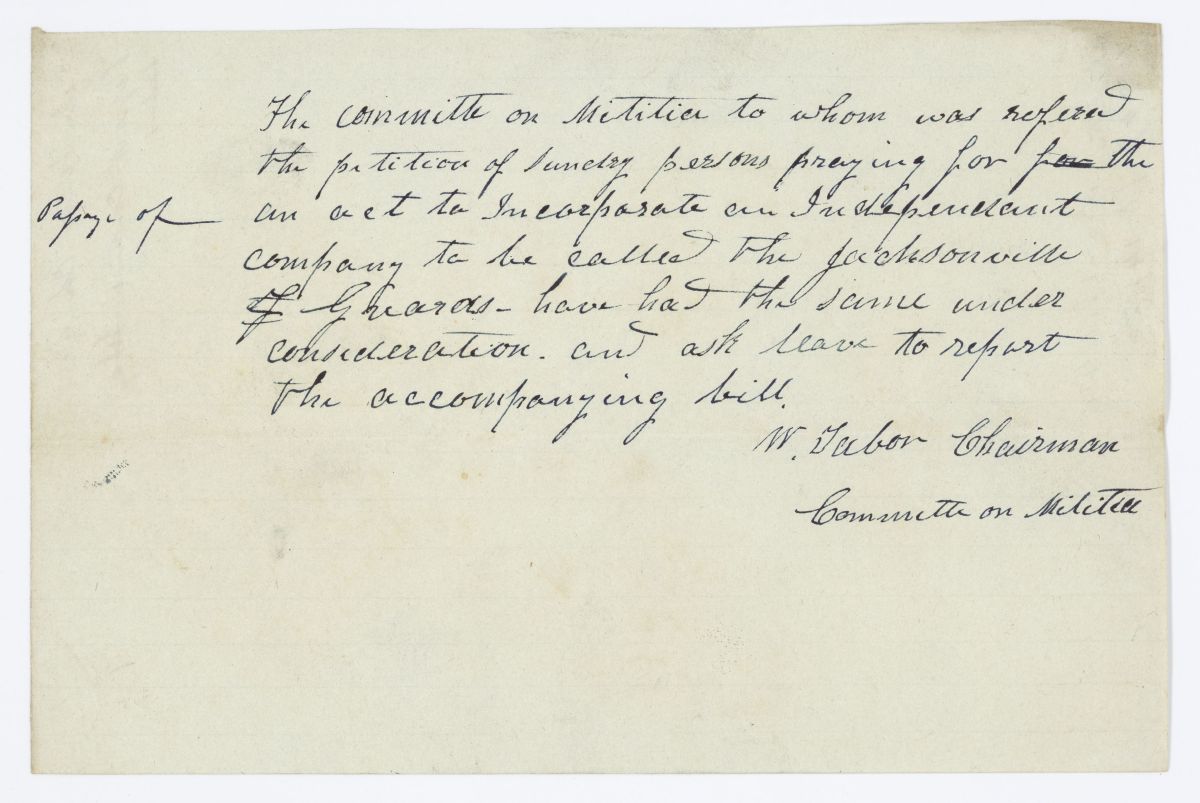 The committe on Militia to whom was refered
the petition of sundry persons praying for for the
Passage of an act to Incorporate an Independant
company to be called the Jacksonville
G Guards - have had the same under
consideration. and ask leave to report
the accompanying bill.
W. Tabor Chairman
Committe on Militia